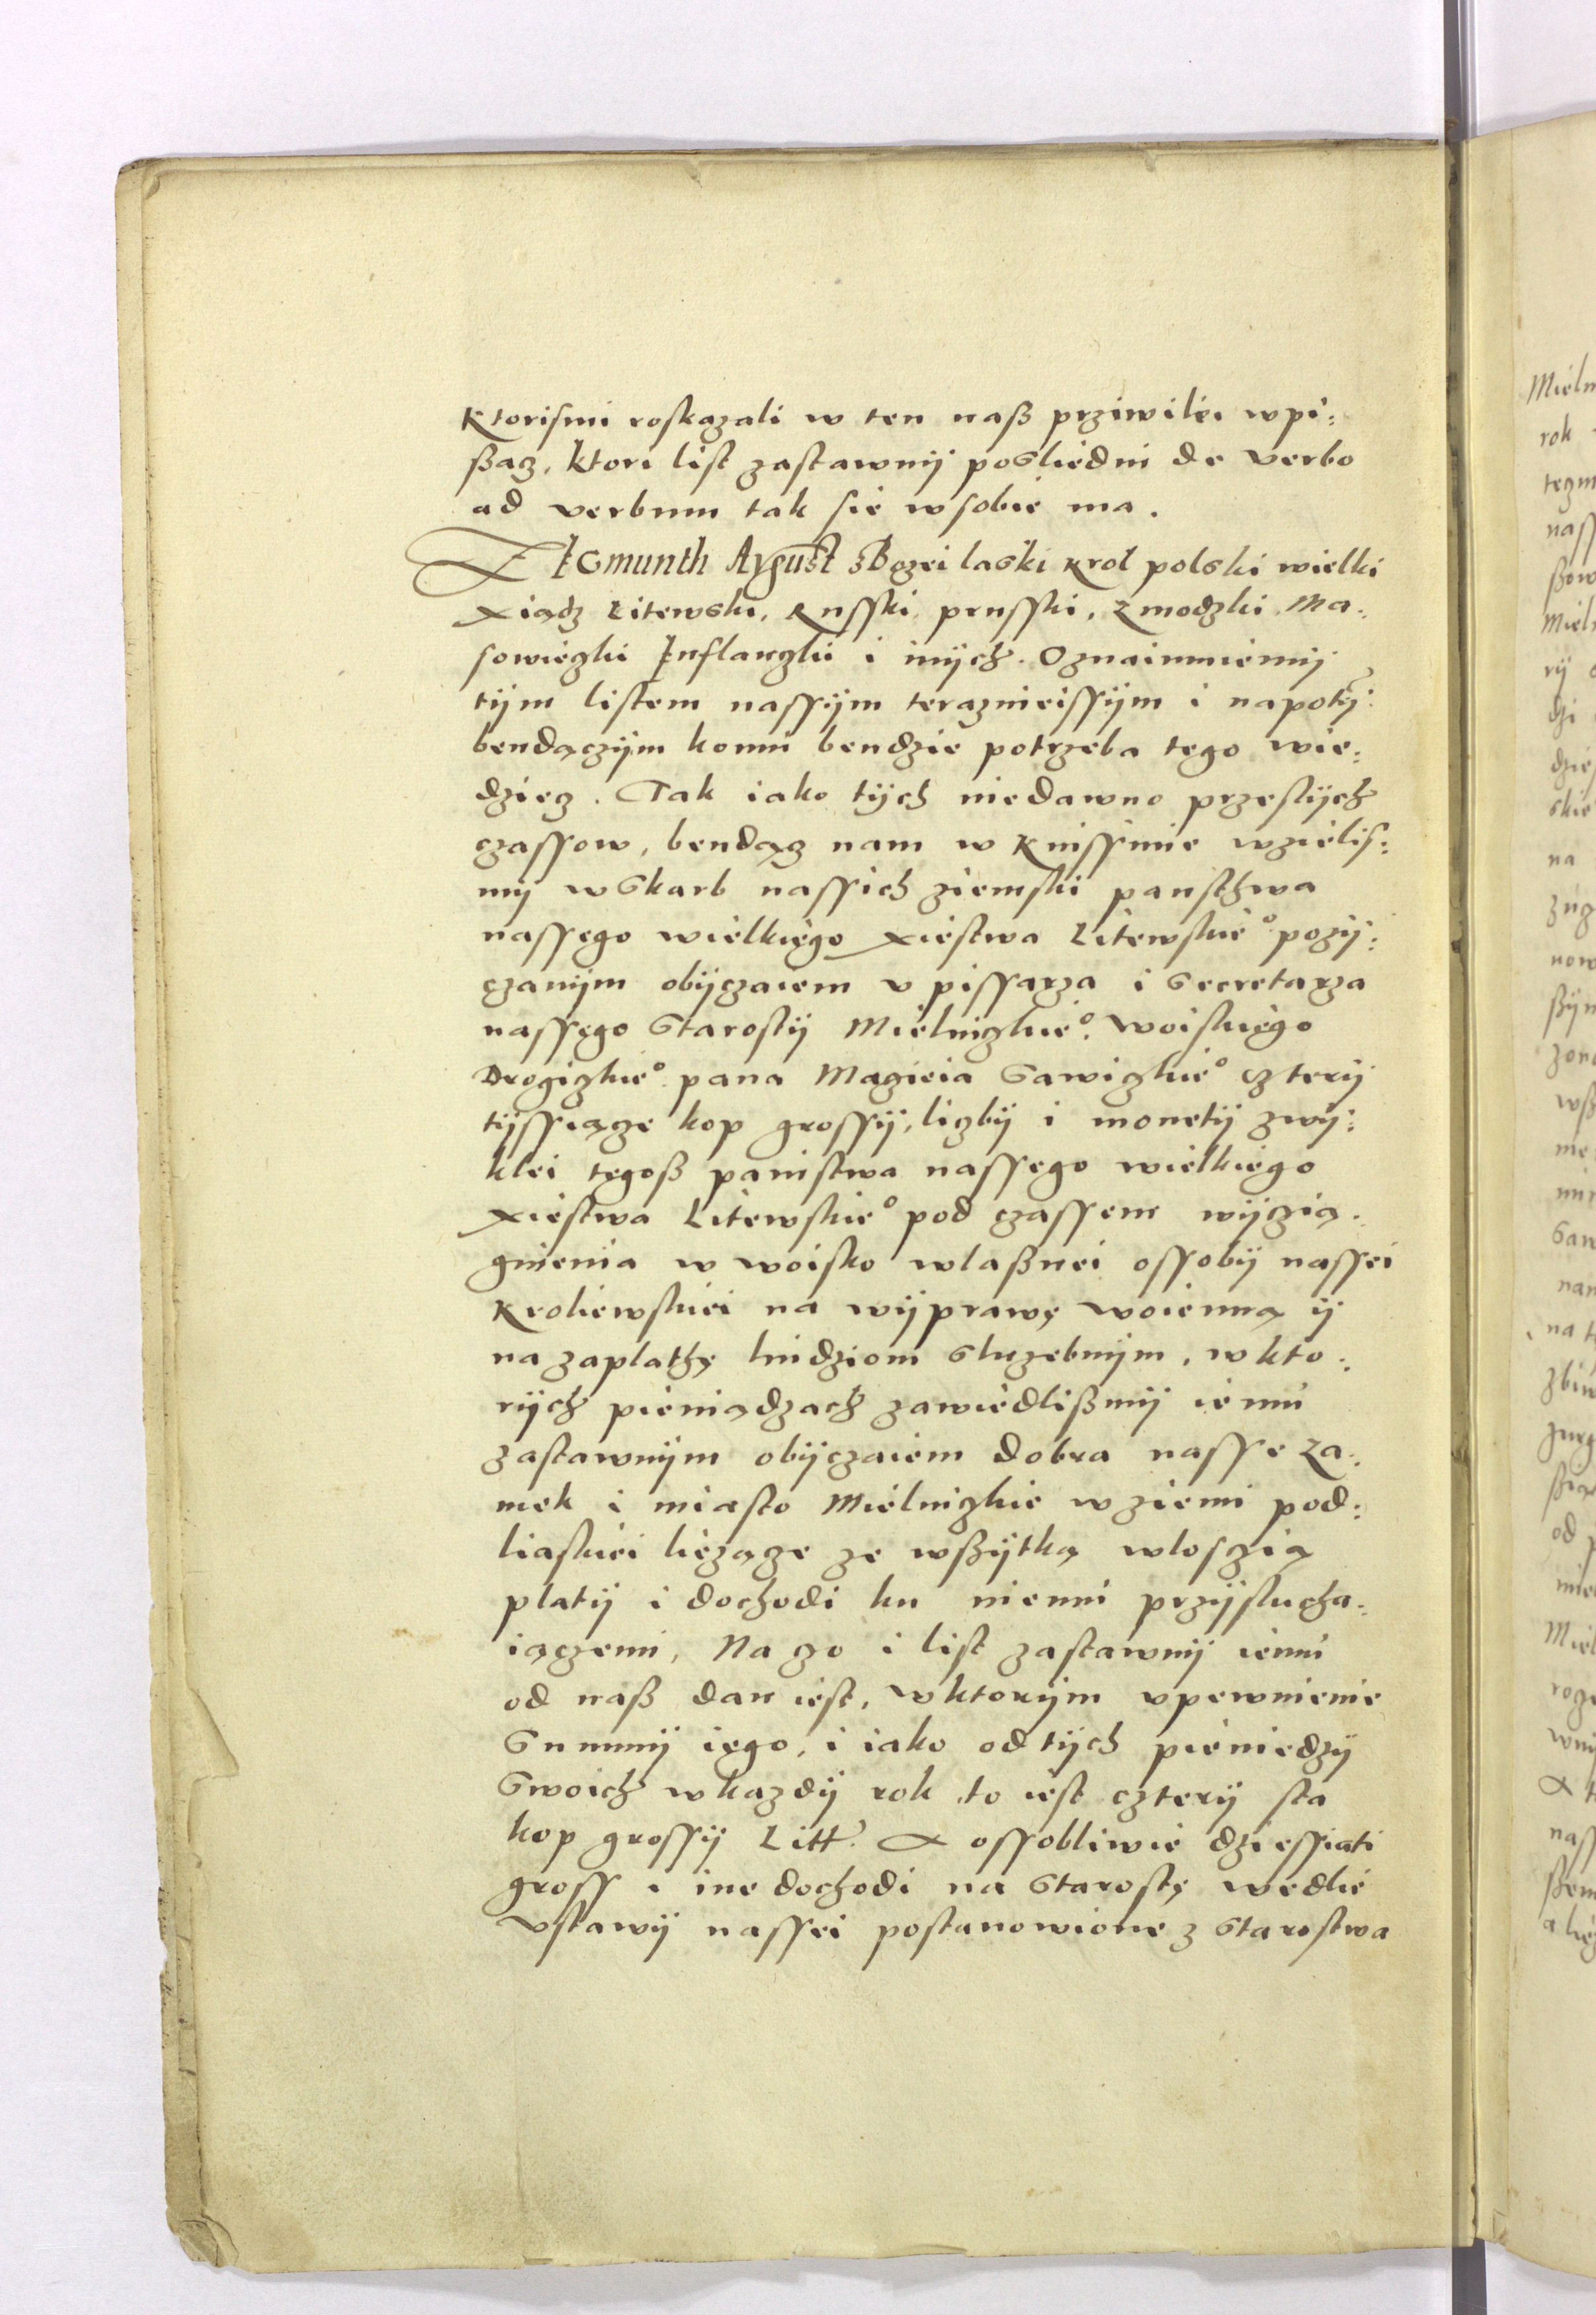 Ktorismi roskazali w ten naß prziwilei wpi:
ßaz, ktori list zastawnÿ posliedni de verbo
ad verbum tak sie w sobie ma.
ZIGmunth August z Bozei laski krol polski wielki
xiądz Litewski, Russki, prusski, Zmodzki Ma:
sowiezki Inflanzki i inÿch. Oznaimuiemÿ
tÿm listem nassÿm teraznieissÿm i napotÿ:
bendączÿm komu bendzie potrzeba tego wie:
dziez. Tak iako tÿch niedawno przeslÿch
czassow, bendąz nam w Knissinie wzielis:
mÿ w skarb nassich ziemski pansthwa
nassego wielkiego xiestwa Litewskie° pozÿ:
czanÿm obÿczaiem v pissarza i Secretarza
nassego Starostÿ Mielnizkie°. Woiskiego
Drogizkie° pana Macieia Sawizkie° czterÿ
tÿssiącze kop grossÿ, liczbÿ i monetÿ zwÿ:
klei tegoß panistwa nassego wielkiego
xiestwa Litewskie° pod czassem wÿczią:
gnienia w woisko wlaßnei ossobÿ nassei
Kroliewskiei na wÿprawę woienną ÿ
na zaplathę liudziom sluzebnÿm, w kto:
rÿch pieniądzach zawiedlißmÿ iemu
zastawnÿm obÿczaiem dobra nasse Za:
mek i miasto Mielnizkie w ziemi pod:
liaskiei liezące ze wßÿtką wloscią
platÿ i dochodi ku niemu przÿslucha:
iączemi, Na czo i list zastawnÿ iemu
od naß dan iest, w ktorÿm vpewnienie
Summÿ iego, i iako od tÿch pieniedzÿ
Swoich w kazdÿ rok to iest czterÿ sta
kop grossÿ Litt. A ossobliwie dziessiati
gross i ine dochodi na Starostę wedlie
vstawÿ nassei postanowione z Starostwa